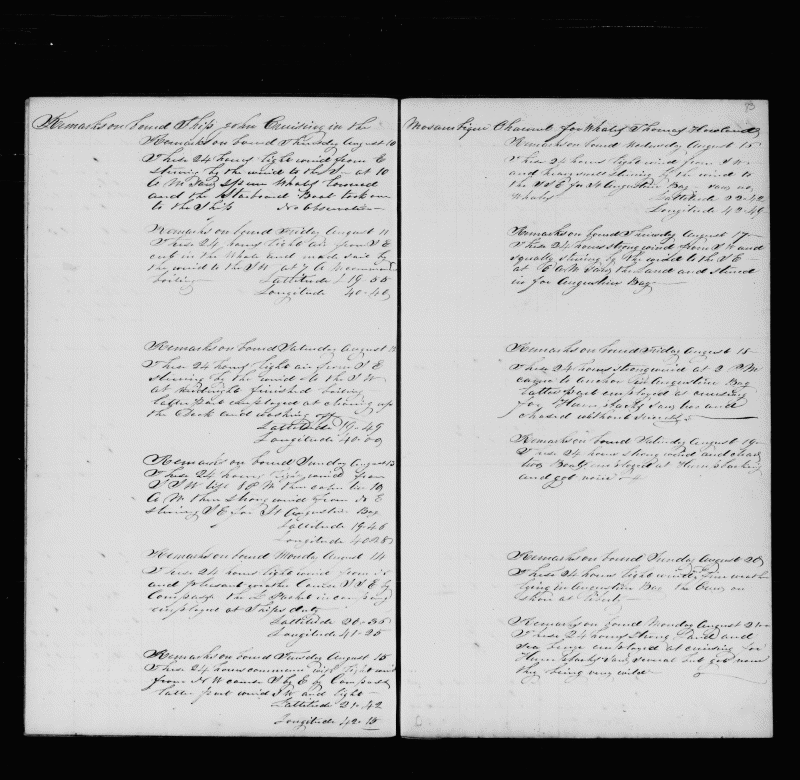 Remarks on board Ship John Cruising in the
Remarks on board Thursday August 10
These 24 hours light wind from E
stering by the wind to the S at 10
A M Saw Sperm Whales lowred
and the Starboard Boat took one
to the Ship No Observation
Remarks on board Friday August 11
These 24 hours light air from S E
cut in the Whale and made sail by
the wind to the S W at 7 A M commenced
boiling Lattitude 19-55
Longitude 40-40
Remarks on board Saturday August 12
These 24 hours light air from S E
stering by the wind to the S W
at Midnight finished boiling
latter part employed at clearing up
the Deck and washing off
Lattitude 19-49
Longitude 40-00
Remarks on board Sunday August 13
These 24 hours light wind from
S S W till 10 P M then calm till 10
A M then strong wind from N E
stering S E for St Augustine Bay
Lattitude 19-46
Longitude 40-28
Remarks on board Monday August 14
These 24 hours light wind from N
and pleasant weather Course S S E by
Compass the Packet in company
employed at Ships duty
Lattitude 20-35
Longitude 41-25
Remarks on board Tuesday August 15
These 24 hours commence with light wind
from N W course S by E by Compass
latter part wind S W and light
Lattitude 21-42
Longitude 42-15
93
Mosambique Channel for Whales Thomas Howland
Remarks on board Wednesday August 16
These 24 hours light wind from S W
and heavy swell stering by the wind to
the S S E for St Augustine Bay saw no
Whales Lattitude 22-42
Longitude 42-46
Remarks on board Thursday August 17
These 24 hours strong wind from S W and
squally stering by the wind to the S E
at 6 A M saw the Land and stood
in for Augustine Bay
Remarks on board Friday August 18
These 24 hours strong wind at 2 P M
came to anchor in Augustine Bay
Latter part employed at cruising
for Hump backs saw two and
chased without success
Remarks on board Saturday August 19
These 24 hours strong wind and clear
two Boats employed at Hump backing
and got none
Remarks on board Sunday August 20
These 24 hours light winds fine weather
lying in Augustine Bay the Crew on
shore at liberty
Remarks on board Monday August 21
These 24 hours strong wind and
sea breeze employed at cruising for
Hump backs saw several but got none
they being very wild